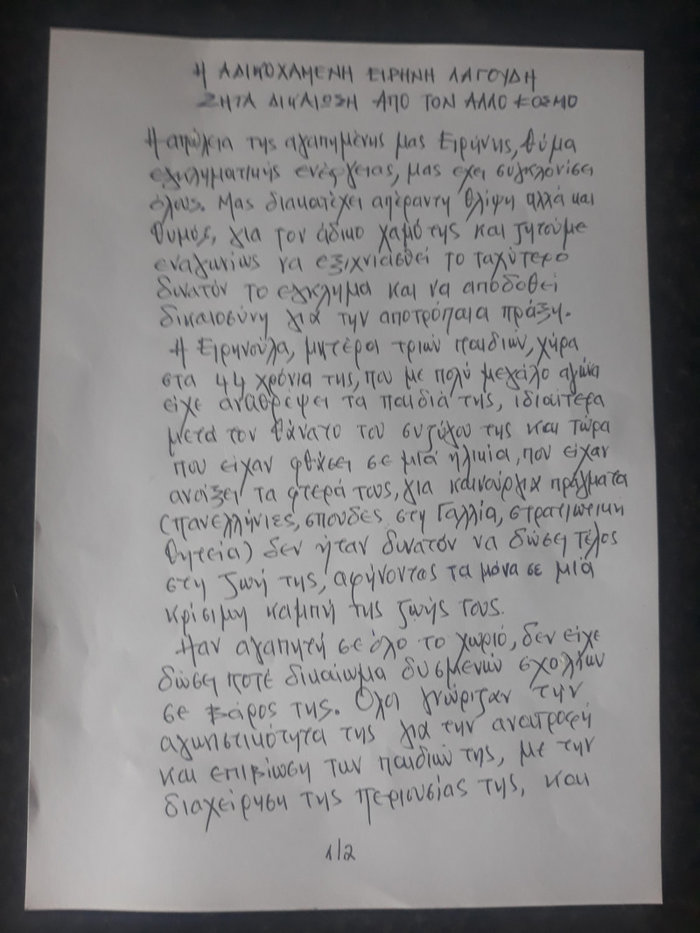 Η ΑΔΙΚΟΧΑΜΕΝΗ ΕΙΡΗΝΗ ΛΑΓΟΥΔΗ
ΖΗΤΑ ΔΙΚΑΙΩΣΗ ΑΠΟ ΤΟΝ ΑΛΛΟ ΚΟΣΜΟ
Η απώλεια της αγαπημένης μας Ειρήνης, θύμα
εγκληματικής ενέργειας, μας έχει συγκλονίσει
όλους. Μας διακατέχει απέραντη θλίψη αλλά και
θυμός, για τον άδικο χαμό της και ζητούμε
εναγωνίως να εξιχνιασθεί το ταχύτερο
δυνατόν το έγκλημα και να αποδοθεί
δικαιοσύνη για την αποτρόπαια πράξη.
Η Ειρηνούλα, μητέρα τριών παιδιών, χήρα
στα 44 χρόνια της, που με πολύ μεγάλο αγώνα
είχε αναθρέψει τα παιδιά της, ιδιαίτερα
μετά τον θάνατο του συζύγου της και τώρα
που είχαν φθάσει σε μιά ηλικία, που είχαν
ανοίξει τα φτερά τους, για καινούργια πράγματα
(πανελλήνιες, σπουδές στη Γαλλία, στρατιωτική
θητεία) δεν ήταν δυνατόν να δώσει τέλος
στη ζωή της, αφήνοντας τα μόνα σε μιά
κρίσιμη καμπή της ζωής τους.
Ήταν αγαπητή σε όλο το χωριό, δεν είχε
δώσει ποτέ δικαίωμα δυσμενών σχολίων
σε βάρος της. Όλοι γνώριζαν την
αγωνιστικότητα της για την ανατροφή
και επιβίωση των παιδιών της, με την
διαχείρηση της περιουσίας της, και
1/2